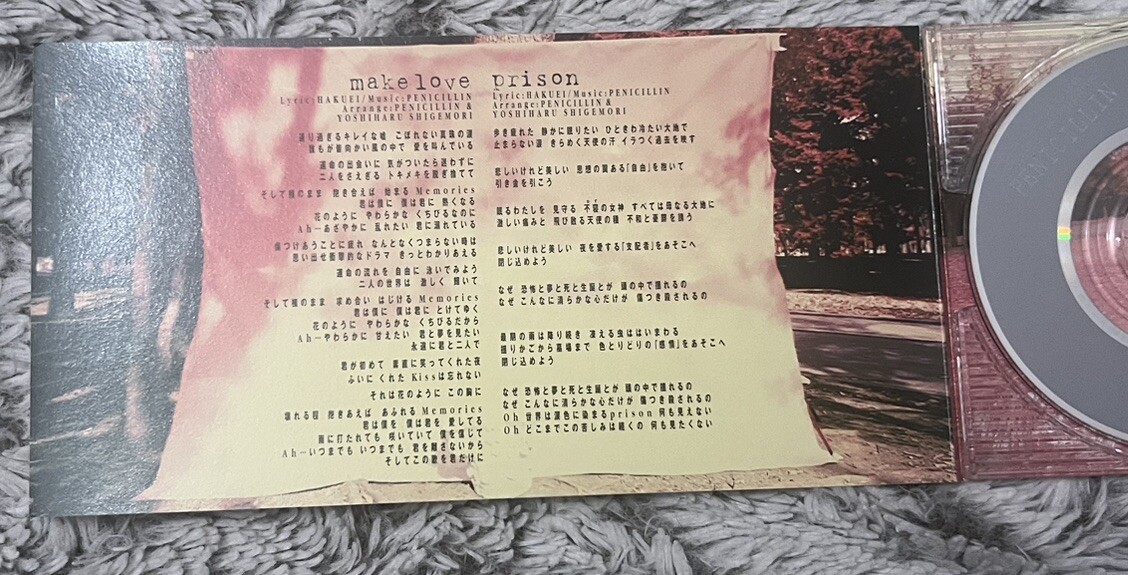 make love
Lyric:HAKUEI/Music:PENICILLIN
Arrange:PENICILLIN &
YOSHIHARU SHIGEMORI
通り過ぎるキレイな嘘 こぼれない真珠の涙
誰もが振向かい風の中で 愛を叫んでいる
運命の出会いに 気がついたら迷わずに
二人をさえぎる トキメキを脱ぎ捨てて
そして裸のまま 抱き合えば 始まる Memories
君は僕に 僕は君に 熱くなる
花のように やわらかな くちびるなのに
Ah―あざやかに 乱れたい 君に溺れている
傷つけあうことに疲れ なんとなくつまらない時は
思い出せ衝撃的なドラマ きっとわかりあえる
運命の流れを 自由に 泳いでみよう
二人の世界は 激しく 輝いて
そして裸のまま 求め合い はじける Memories
君は僕に 僕は君に とけてゆく
花のように やわらかな くちびるだから
Ah―やわらかに 甘えたい 君と夢を見たい
永遠に君と二人で
君が初めて 素直に笑ってくれた夜
ふいに くれた Kissは忘れない
それは花のように この胸に
壊れる程 抱きあえば あふれる Memories
君は僕を 僕は君を 愛してる
雨に打たれても 咲いていて 僕を信じて
Ah―いつまでも いつまでも 君を離さないから
そしてこの歌を君だけに
prison
Lyric:HAKUEI/Music:PENICILLIN
Arrange:PENICILLIN &
YOSHIHARU SHIGEMORI
歩き疲れた 静かに眠りたい ひときわ冷たい大地で
止まらない涙 きらめく天使の汗 イラつく過去を映す
悲しいけれど美しい 思想の翼ある「自由」を抱いて
引き金を引こう
眠るわたしを 見守る 不窃の女神 すべては母なる大地に
激しい痛みと 飛び散る天使の種 不和と憂鬱を誘う
悲しいけれど美しい 夜を愛する「支配者」をあそこへ
閉じ込めよう
なぜ 恐怖と夢と死と生誕とが 頭の中で揺れるの
なぜ こんなに清らかな心だけが 傷つき殺されるの
最期の雨は降り続き 凍える虫ははいまわる
揺りかごから墓場まで 色とりどりの「感情」をあそこへ
閉じ込めよう
なぜ 恐怖と夢と死と生誕とが 頭の中で揺れるの
なぜ こんなに清らかな心だけが 傷つき殺されるの
Oh 世界は涙色に染まるprison 何も見えない
Oh どこまでこの苦しみは続くの 何も見たくない
PENICILLIN